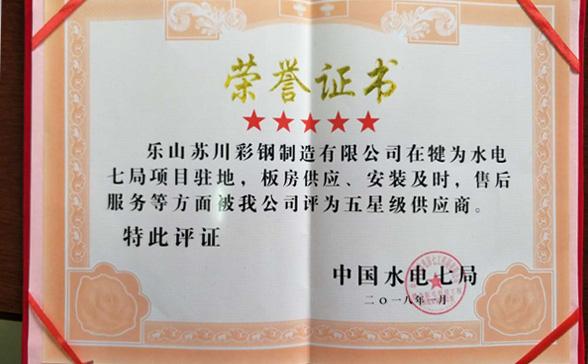 荣誉证书
乐山苏川彩钢制造有限公司在犍为水电
七局项目驻地，板房供应、安装及时，售后
服务等方面被我公司评为五星级供应商。
特此评证
中国水电七局
二〇一八年一月